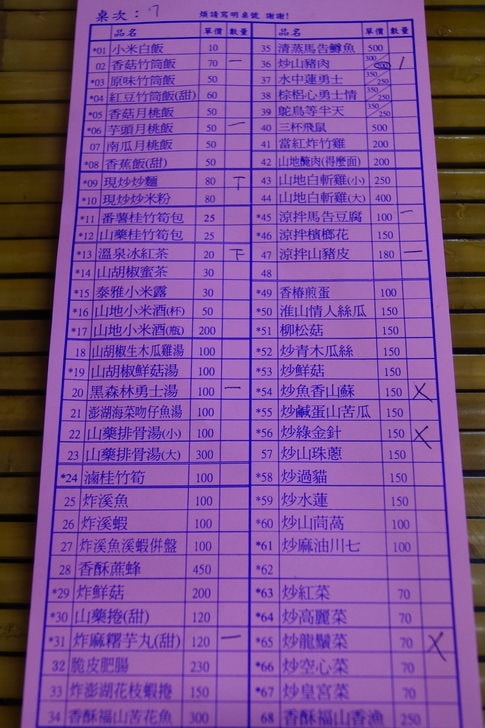 桌次：7 煩請寫明桌號 謝謝!
品名 單價 數量
*01 小米白飯 10
02 香菇竹筒飯 70 一
*03 原味竹筒飯 50
*04 紅豆竹筒飯(甜) 60
*05 香菇月桃飯 50
*06 芋頭月桃飯 50 一
07 南瓜月桃飯 50
*08 香蕉飯(甜) 50
*09 現炒炒麵 80 丅
*10 現炒炒米粉 80
*11 番薯桂竹筍包 25
*12 山藥桂竹筍包 25
*13 溫泉冰紅茶 20 下
*14 山胡椒蜜茶 30
*15 泰雅小米露 30
*16 山地小米酒(杯) 50
*17 山地小米酒(瓶) 200
18 山胡椒生木瓜雞湯 100
*19 山胡椒鮮菇湯 100
20 黑森林勇士湯 100 一
21 澎湖海菜吻仔魚湯 100
22 山藥排骨湯(小) 100
23 山藥排骨湯(大) 300
*24 滷桂竹筍 100
25 炸溪魚 100
26 炸溪蝦 100
27 炸溪魚溪蝦併盤 100
28 香酥蔗蜂 450
*29 炸鮮菇 200
*30 山藥捲(甜) 120
*31 炸麻糬芋丸(甜) 120 一
32 脆皮肥腸 230
33 炸澎湖花枝蝦捲 150
34 香酥福山苦花魚 300
品名 單價 數量
35 清蒸馬告鱒魚 500
36 炒山豬肉 300/500 /
37 水中蓮勇士 350/250
38 棕梠心勇士情 350/250
39 鴕鳥等半天 350/250
40 三杯飛鼠 500
41 當紅炸竹雞 200
42 山地醃肉(得麼面) 200
43 山地白斬雞(小) 250
44 山地白斬雞(大) 400
*45 涼拌馬告豆腐 100 一
*46 涼拌檳榔花 150
47 涼拌山豬皮 180 一
48
*49 香椿煎蛋 100
*50 淮山情人絲瓜 150
*51 柳松菇 150
*52 炒青木瓜絲 150
*53 炒鮮菇 150
*54 炒魚香山蘇 150 X
*55 炒鹹蛋山苦瓜 150
*56 炒綠金針 150 X
57 炒山珠蔥 150
*58 炒過貓 150
*59 炒水蓮 150
*60 炒山茼萵 100
*61 炒麻油川七 100
*62
*63 炒紅菜 70
*64 炒高麗菜 70
*65 炒龍鬚菜 70 X
*66 炒空心菜 70
*67 炒皇宮菜 70
68 香酥福山香漁 250